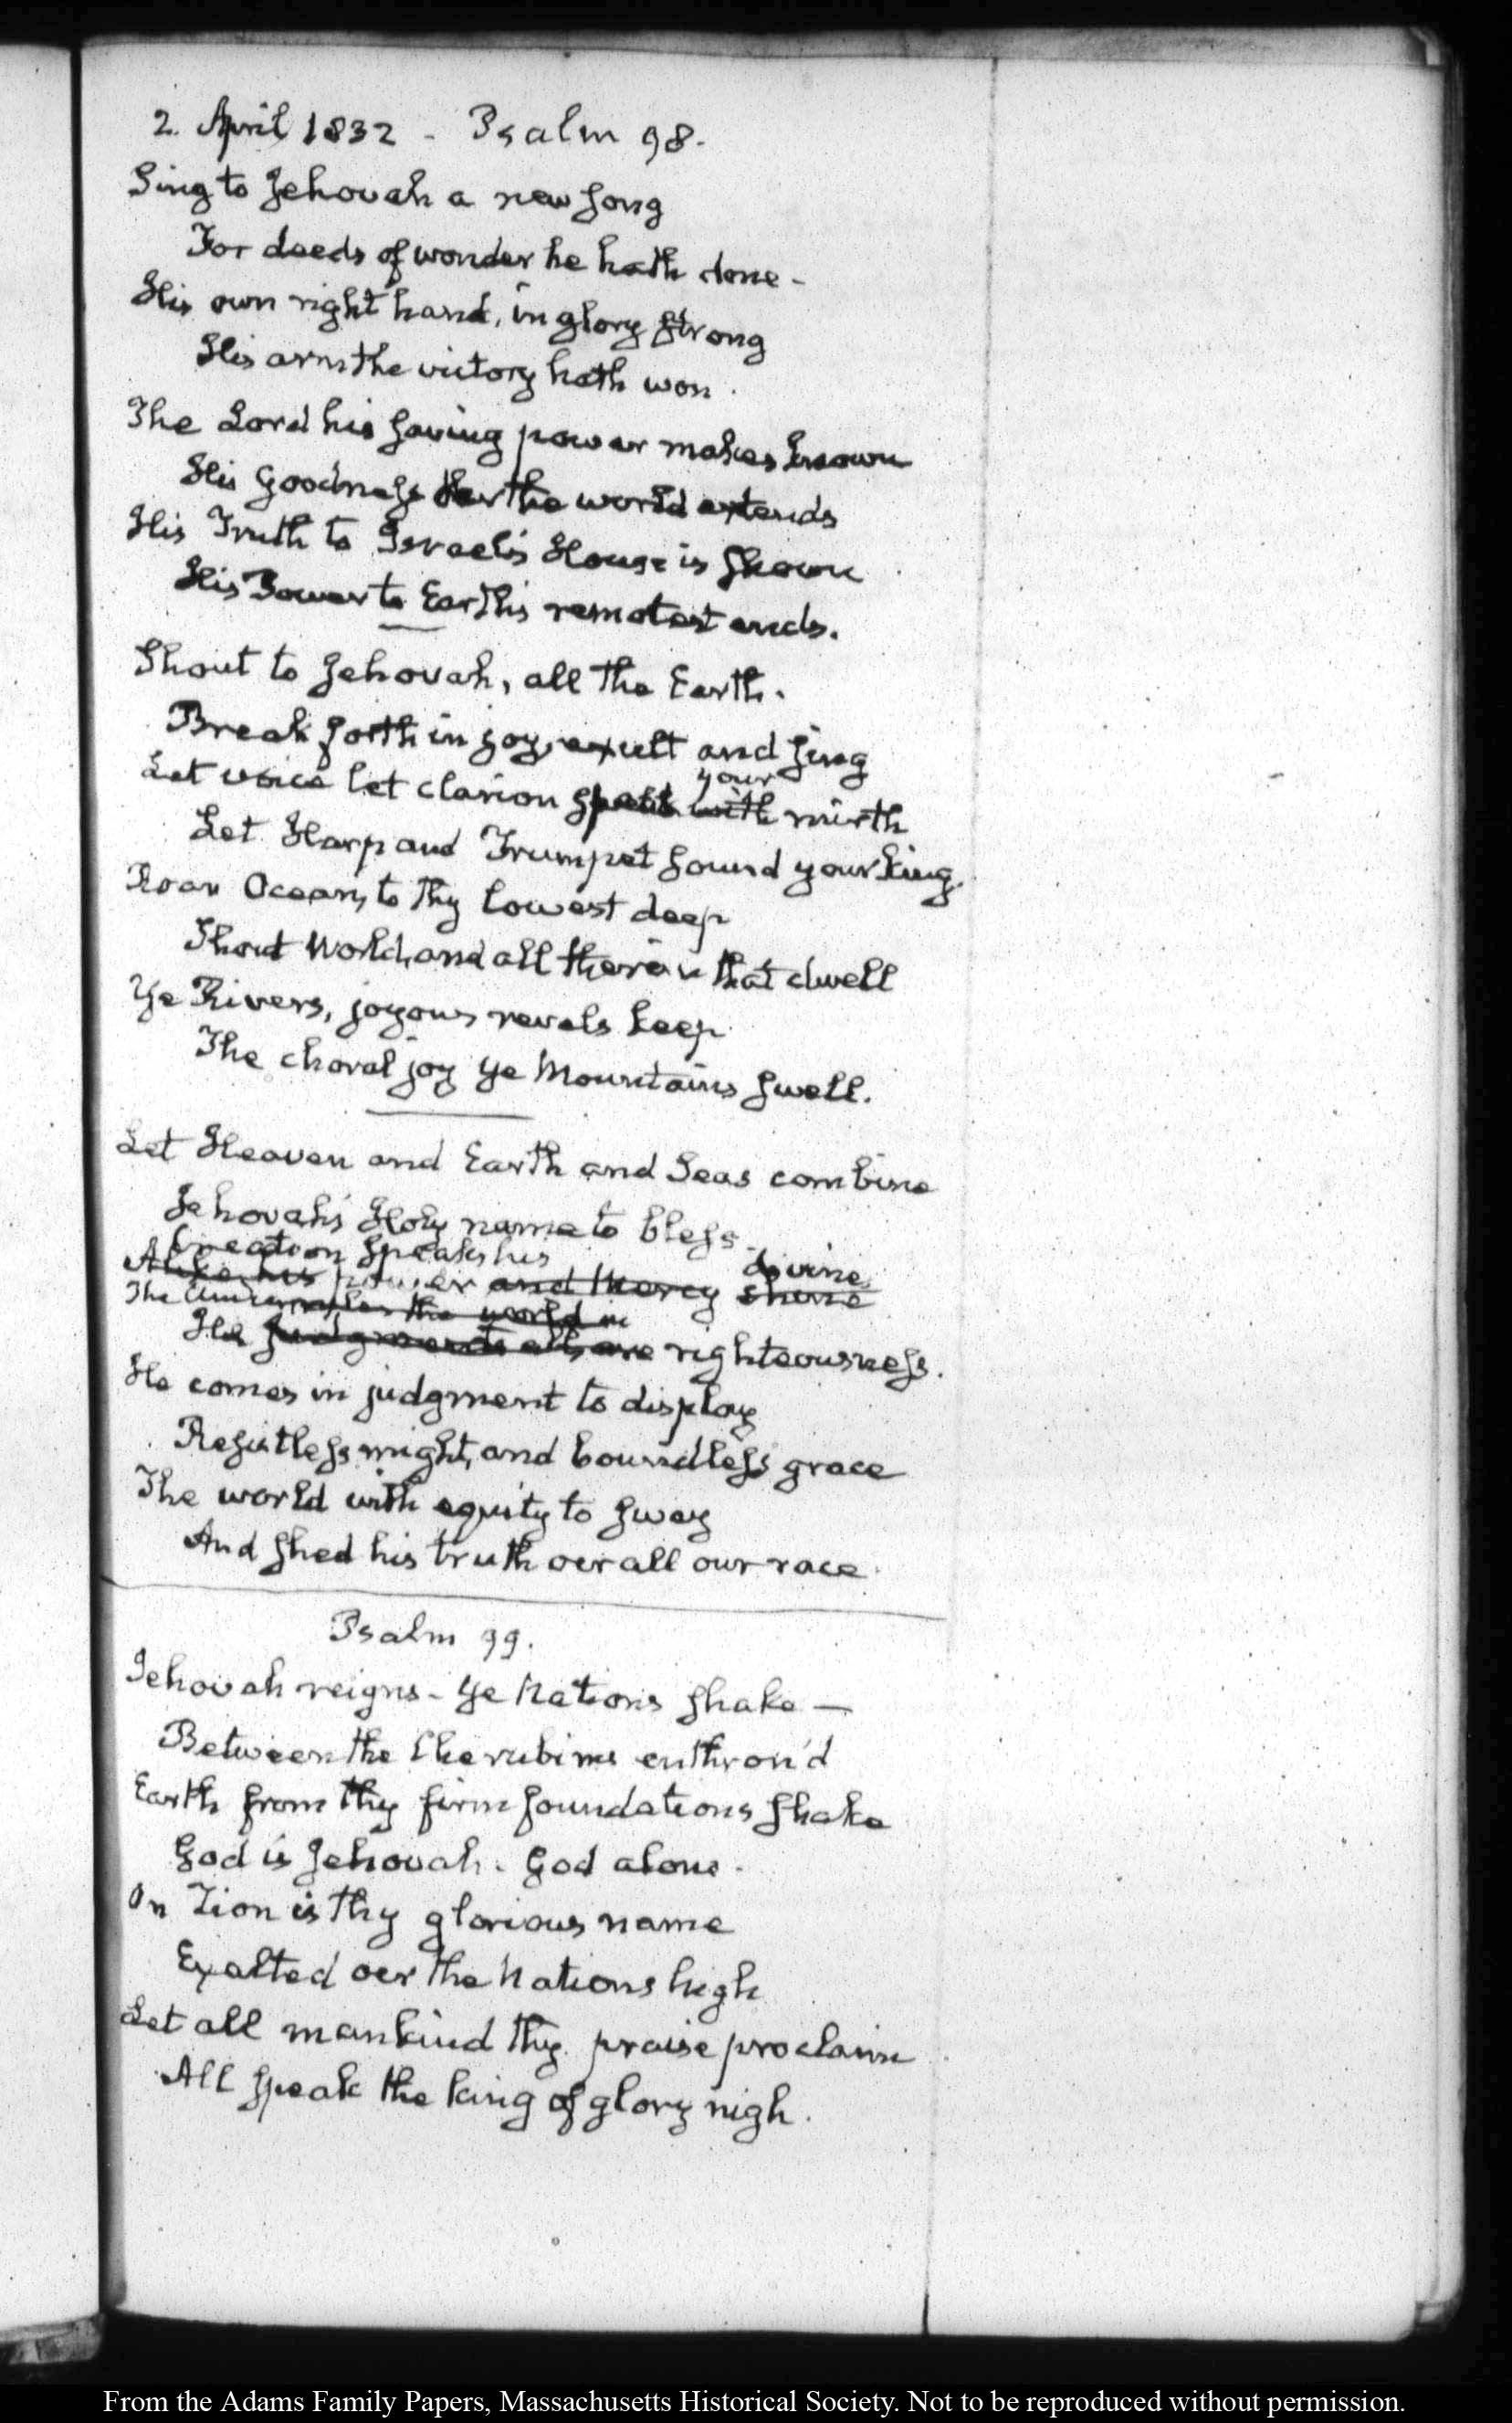 2. April 1832 - Psalm 98.
Sing to Jehovah a new song
For deeds of wonder he hath done -
His own right hand, in glory strong
His arm the victory hath won.
The Lord his saving power makes known
His goodness o'er the world extends
His Truth to Israel's House is shown
His Power to Earth's remotest ends.
Shout to Jehovah, all the Earth.
Break forth in joy, exult and sing
your
Let voice let clarion speak with mirth
Let Harp and Trumpet sound your king.
Roar Ocean, to thy lowest deep
Shout World, and all therein that dwell
Ye Rivers, joyous revels keep
The choral joy ye Mountains swell.
Let Heaven and Earth and Seas combine
Jehovah's Holy name to bless.
Creation speaks his divine
Alike his power and Mercy shine
The rules the world in
His judgments all are righteousness.
He comes in judgment to display
Resistless might, and boundless grace
The world with equity to sway
And shed his truth o'er all our race.
Psalm 99.
Jehovah reigns - Ye Nations shake —
Between the Cherubims enthron'd
Earth from thy firm foundations shake
God is Jehovah. God alone.
On Zion is thy glorious name
Exalted oer the Nations high
Let all mankind thy praise proclaim
All speak the king of glory nigh.
From the Adams Family Papers, Massachusetts Historical Society. Not to be reproduced without permission.